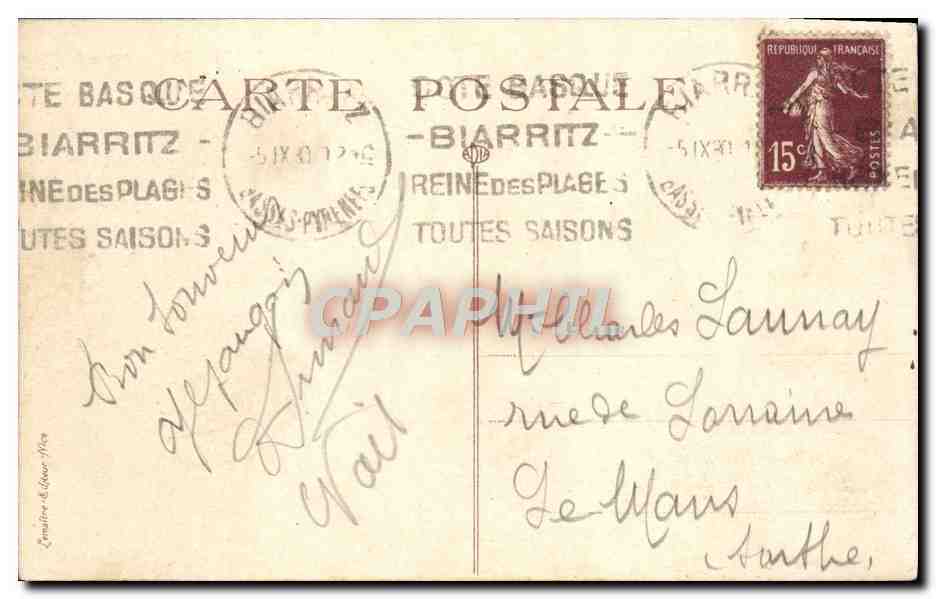 CARTE POSTALE
TE BASQUE
BIARRITZ -
REINE DES PLAGES
TOUTES SAISONS
BIARRITZ
-5 IX 30
BASSES-PYRENEES
COTE BASQUE
-BIARRITZ-
REINE DES PLAGES
TOUTES SAISONS
BIARR
-5 IX 30
BASSES
REPUBLIQUE FRANÇAISE
15c
POSTES
TOUTE
Bon Souvenir
d'Espagne
CPAPHIL
Mr Charles Launay
rue de Lorraine
Le Mans
Sarthe,
Lemaître-Editeur-Nice